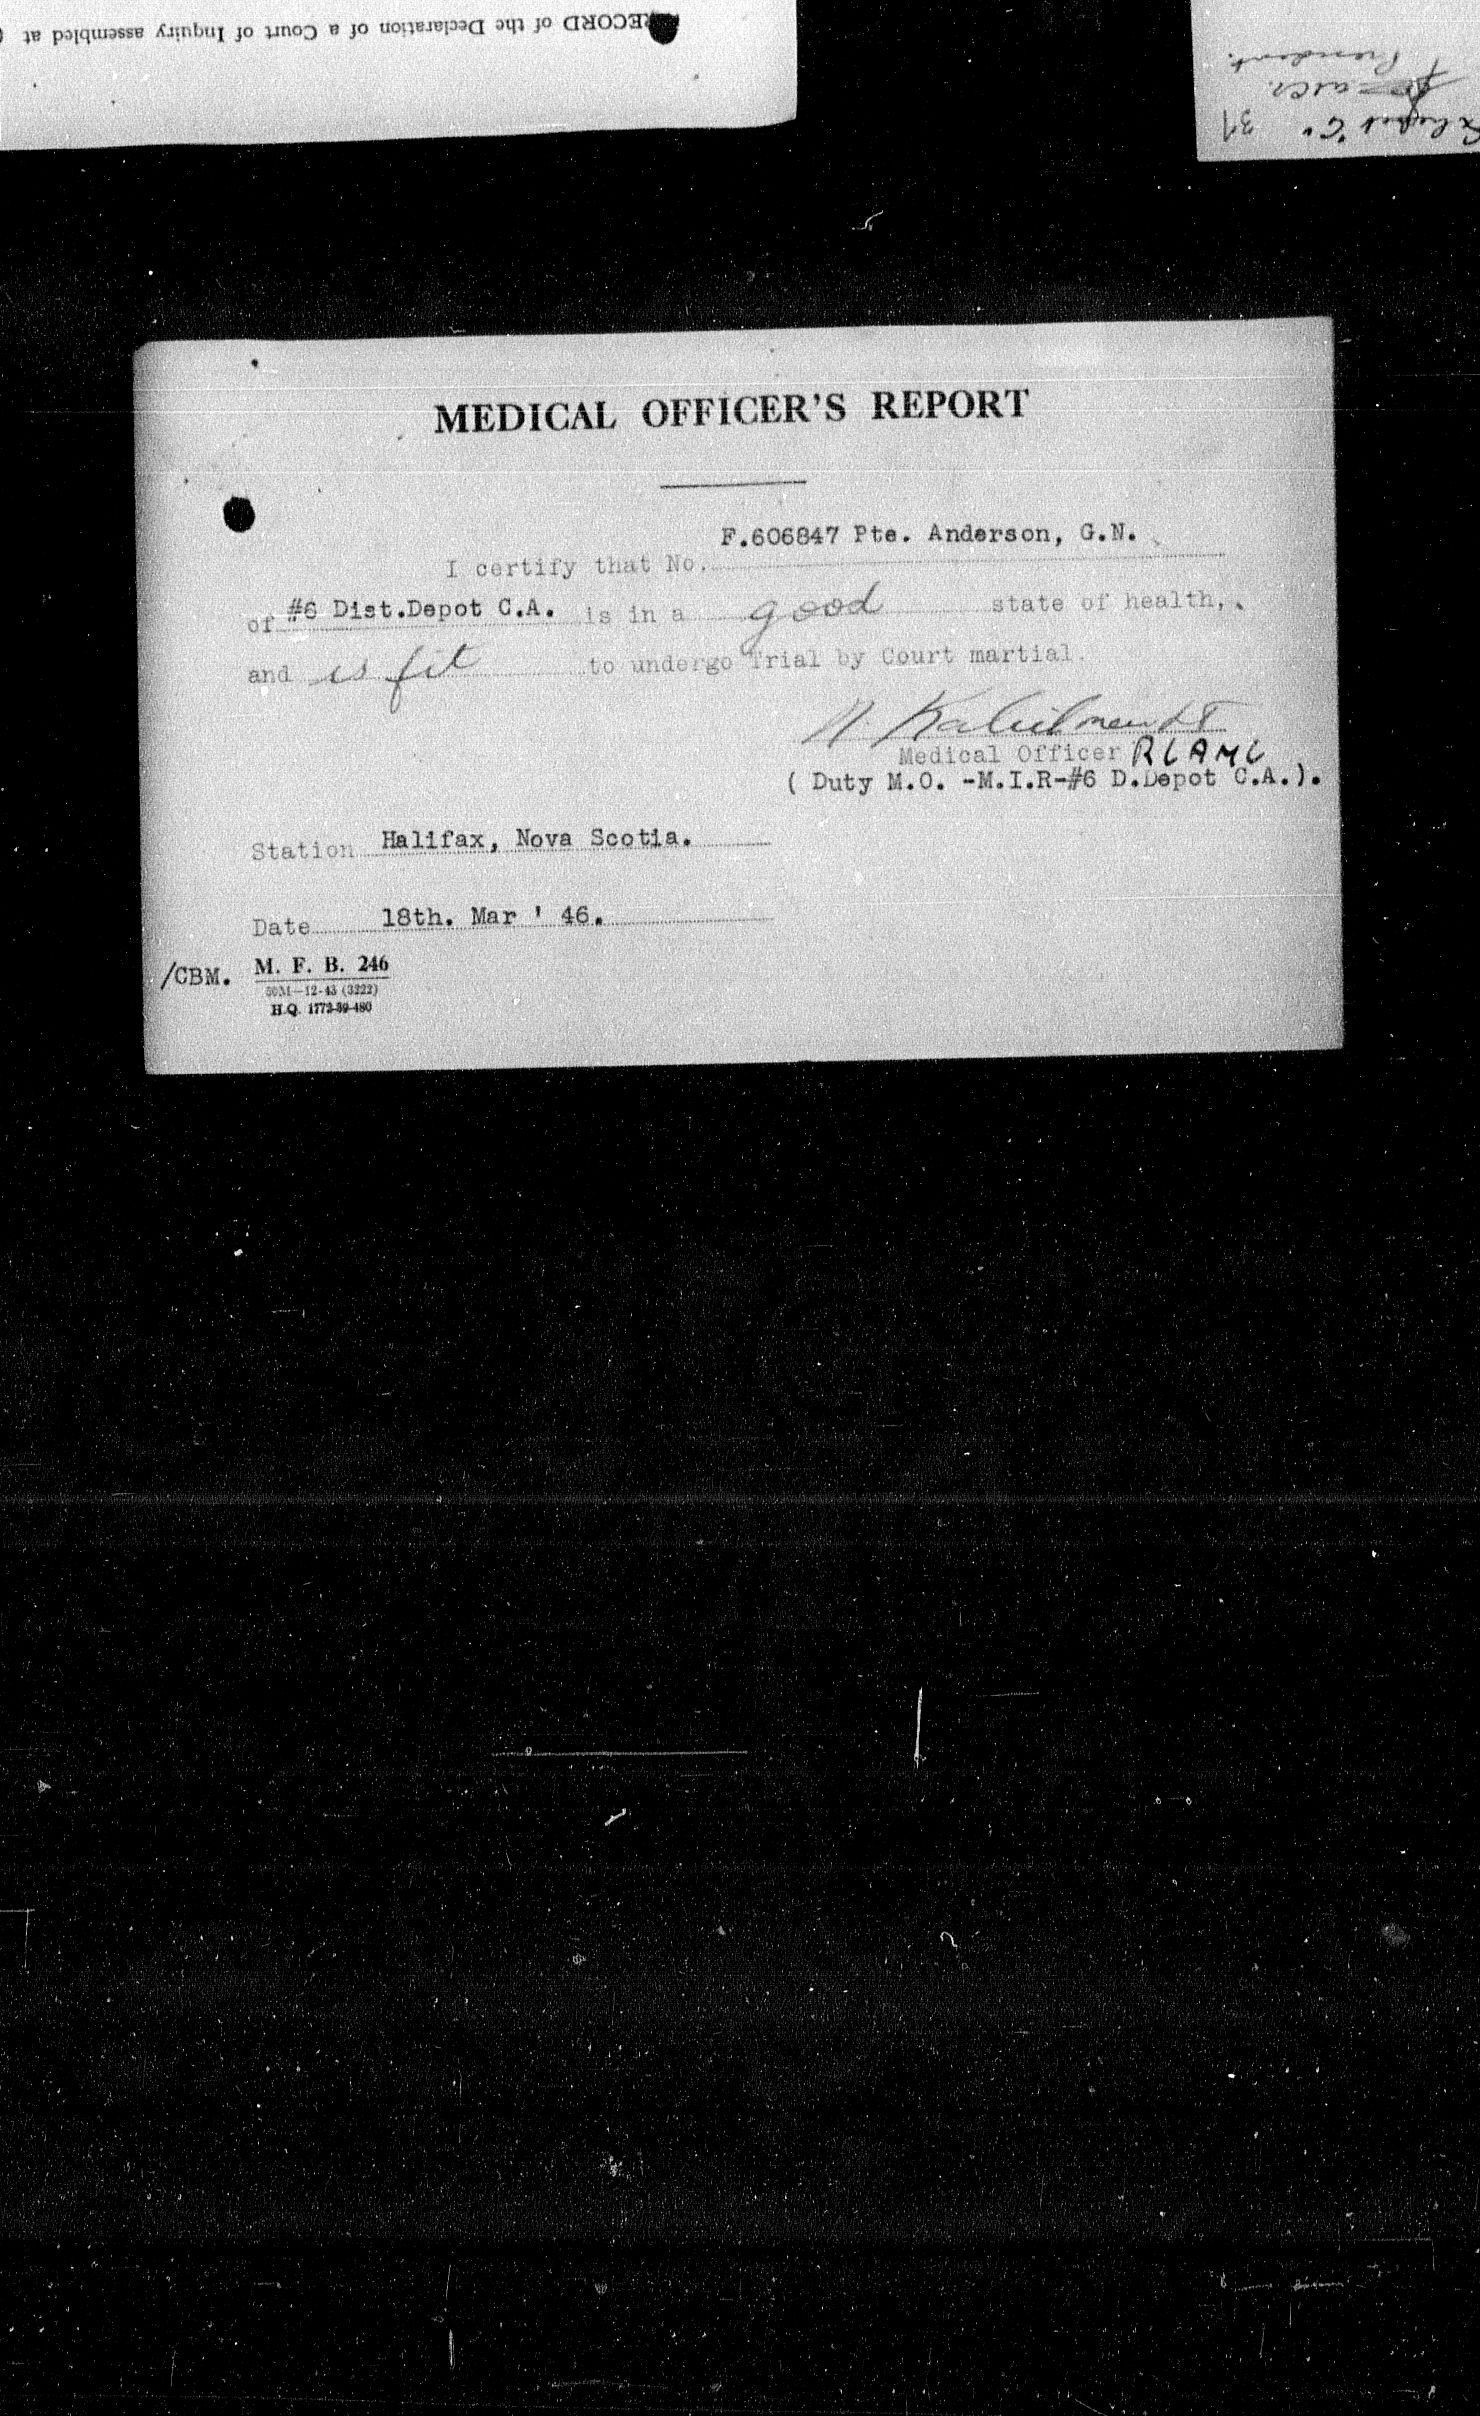 RECORD of the Declaration of a Court of Inquiry assembled at
Exhibit "C" 31
President.
MEDICAL OFFICER'S REPORT
I certify that No. F.606847 Pte. Anderson, G.N.
of #6 Dist.Depot C.A. is in a good state of health,
and is fit to undergo Trial by Court martial.
Medical Officer RCAMC
( Duty M.O. -M.I.R-#6 D.Depot C.A.).
Station Halifax, Nova Scotia.
Date 18th. Mar ' 46.
/CBM. M. F. B. 246
50M—12-43 (3222)
H.Q. 1772-39-480